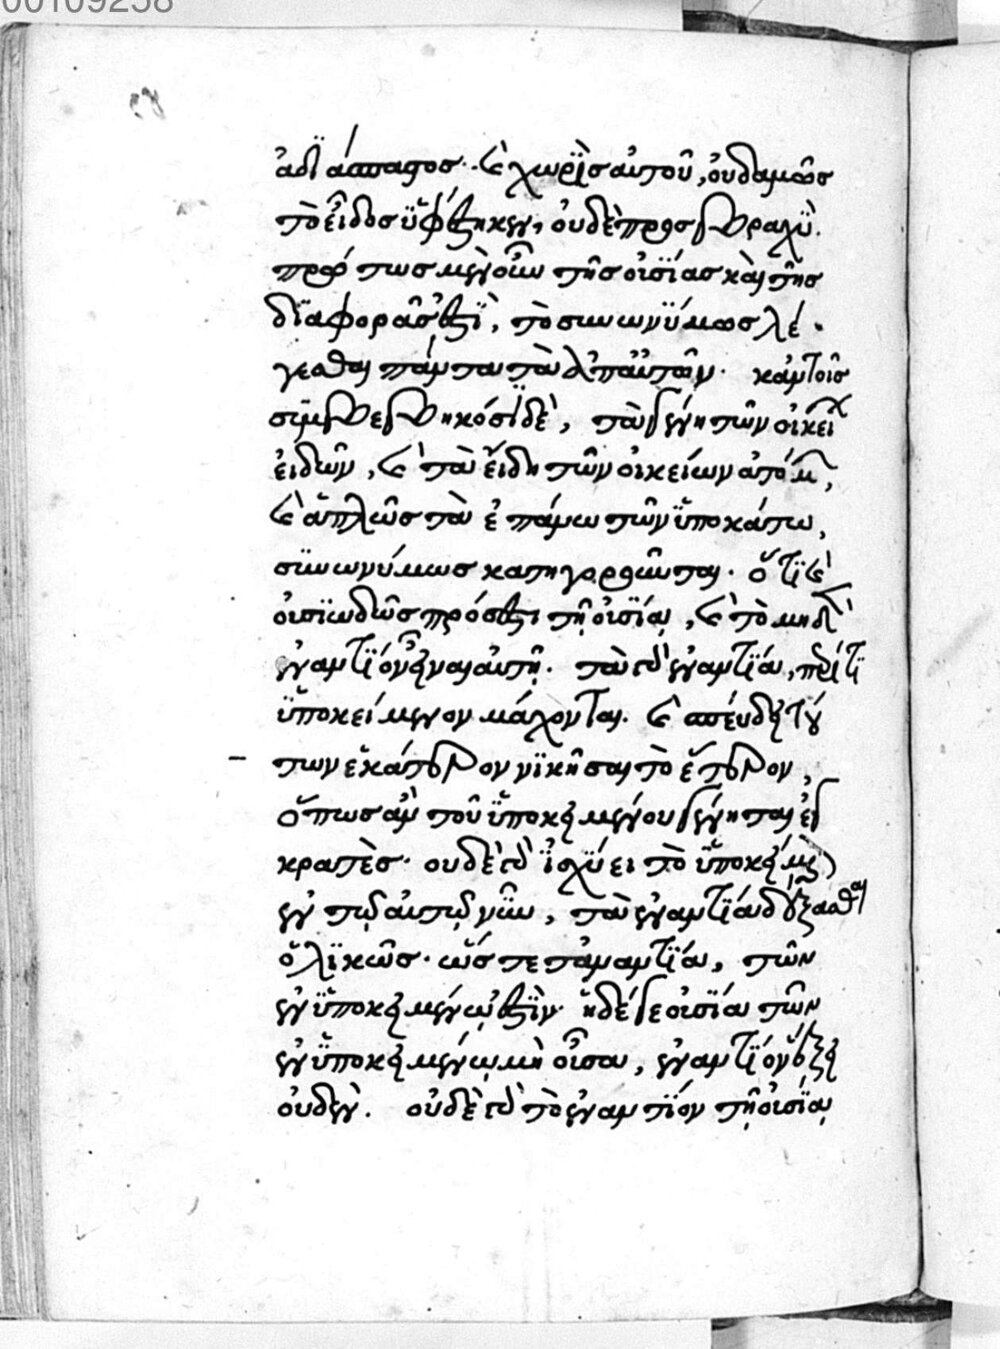 00109258
ἀδϊάσπαστος· καὶ χωρϊς αὐτοῦ, οὐδαμῶς
τὸ εἶδος ὑφέστηκεν, οὐδὲ πρὸς βραχὺ.
πρώτως μὲν οὖν τῆς οὐσίας καὶ τῆς
διαφορᾶς ἐστὶ, τὸ συνωνύμως λέ
γεσθαι πάντα τὰ ἀπ' αὐτῶν. κἀν τοῖς
συμβεβηκόσι δὲ, τὰ γένη τῶν οἰκείων
εἰδῶν, καὶ τὰ εἴδη τῶν οἰκείων ἀτόμων,
καὶ ἁπλῶς τὰ ἐπάνω τῶν ὑποκάτω,
συνωνύμως κατηγοροῦνται. ὅτι καὶ
οὐσιωδῶς πρόσεστι τῇ οὐσίᾳ, καὶ τὸ μηδὲν
ἐναντίον εἶναι αὐτῇ. τὰ δ' ἐναντία, περί τι
ὑποκείμενον μάχονται. καὶ σπεύδει τού
των ἑκάτερον νικῆσαι τὸ ἕτερον,
ὅπως ἂν τοῦ ὑποκειμένου γένηται ἐγ
κρατὲς. οὐδὲ δ' ἰσχύει τὸ ὑποκείμενον
ἐν τῷ αὐτῷ νῦν, τὰ ἐναντία δέξασθαι
ὁλικῶς. ὥστε τἀναντία, τῶν
ἐν ὑποκειμένῳ ἐστὶν. ἡ δέ γε οὐσία τῶν
ἐν ὑποκειμένῳ μὴ οὖσα, ἐναντίον ἕξει
οὐδέν. οὐδὲ δ' τὸ ἐναντίον τῇ οὐσίᾳ